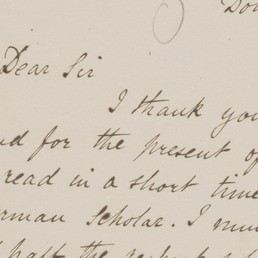 Dear Sir
I thank you
for the present of
read in a short time
Scholar. I
the